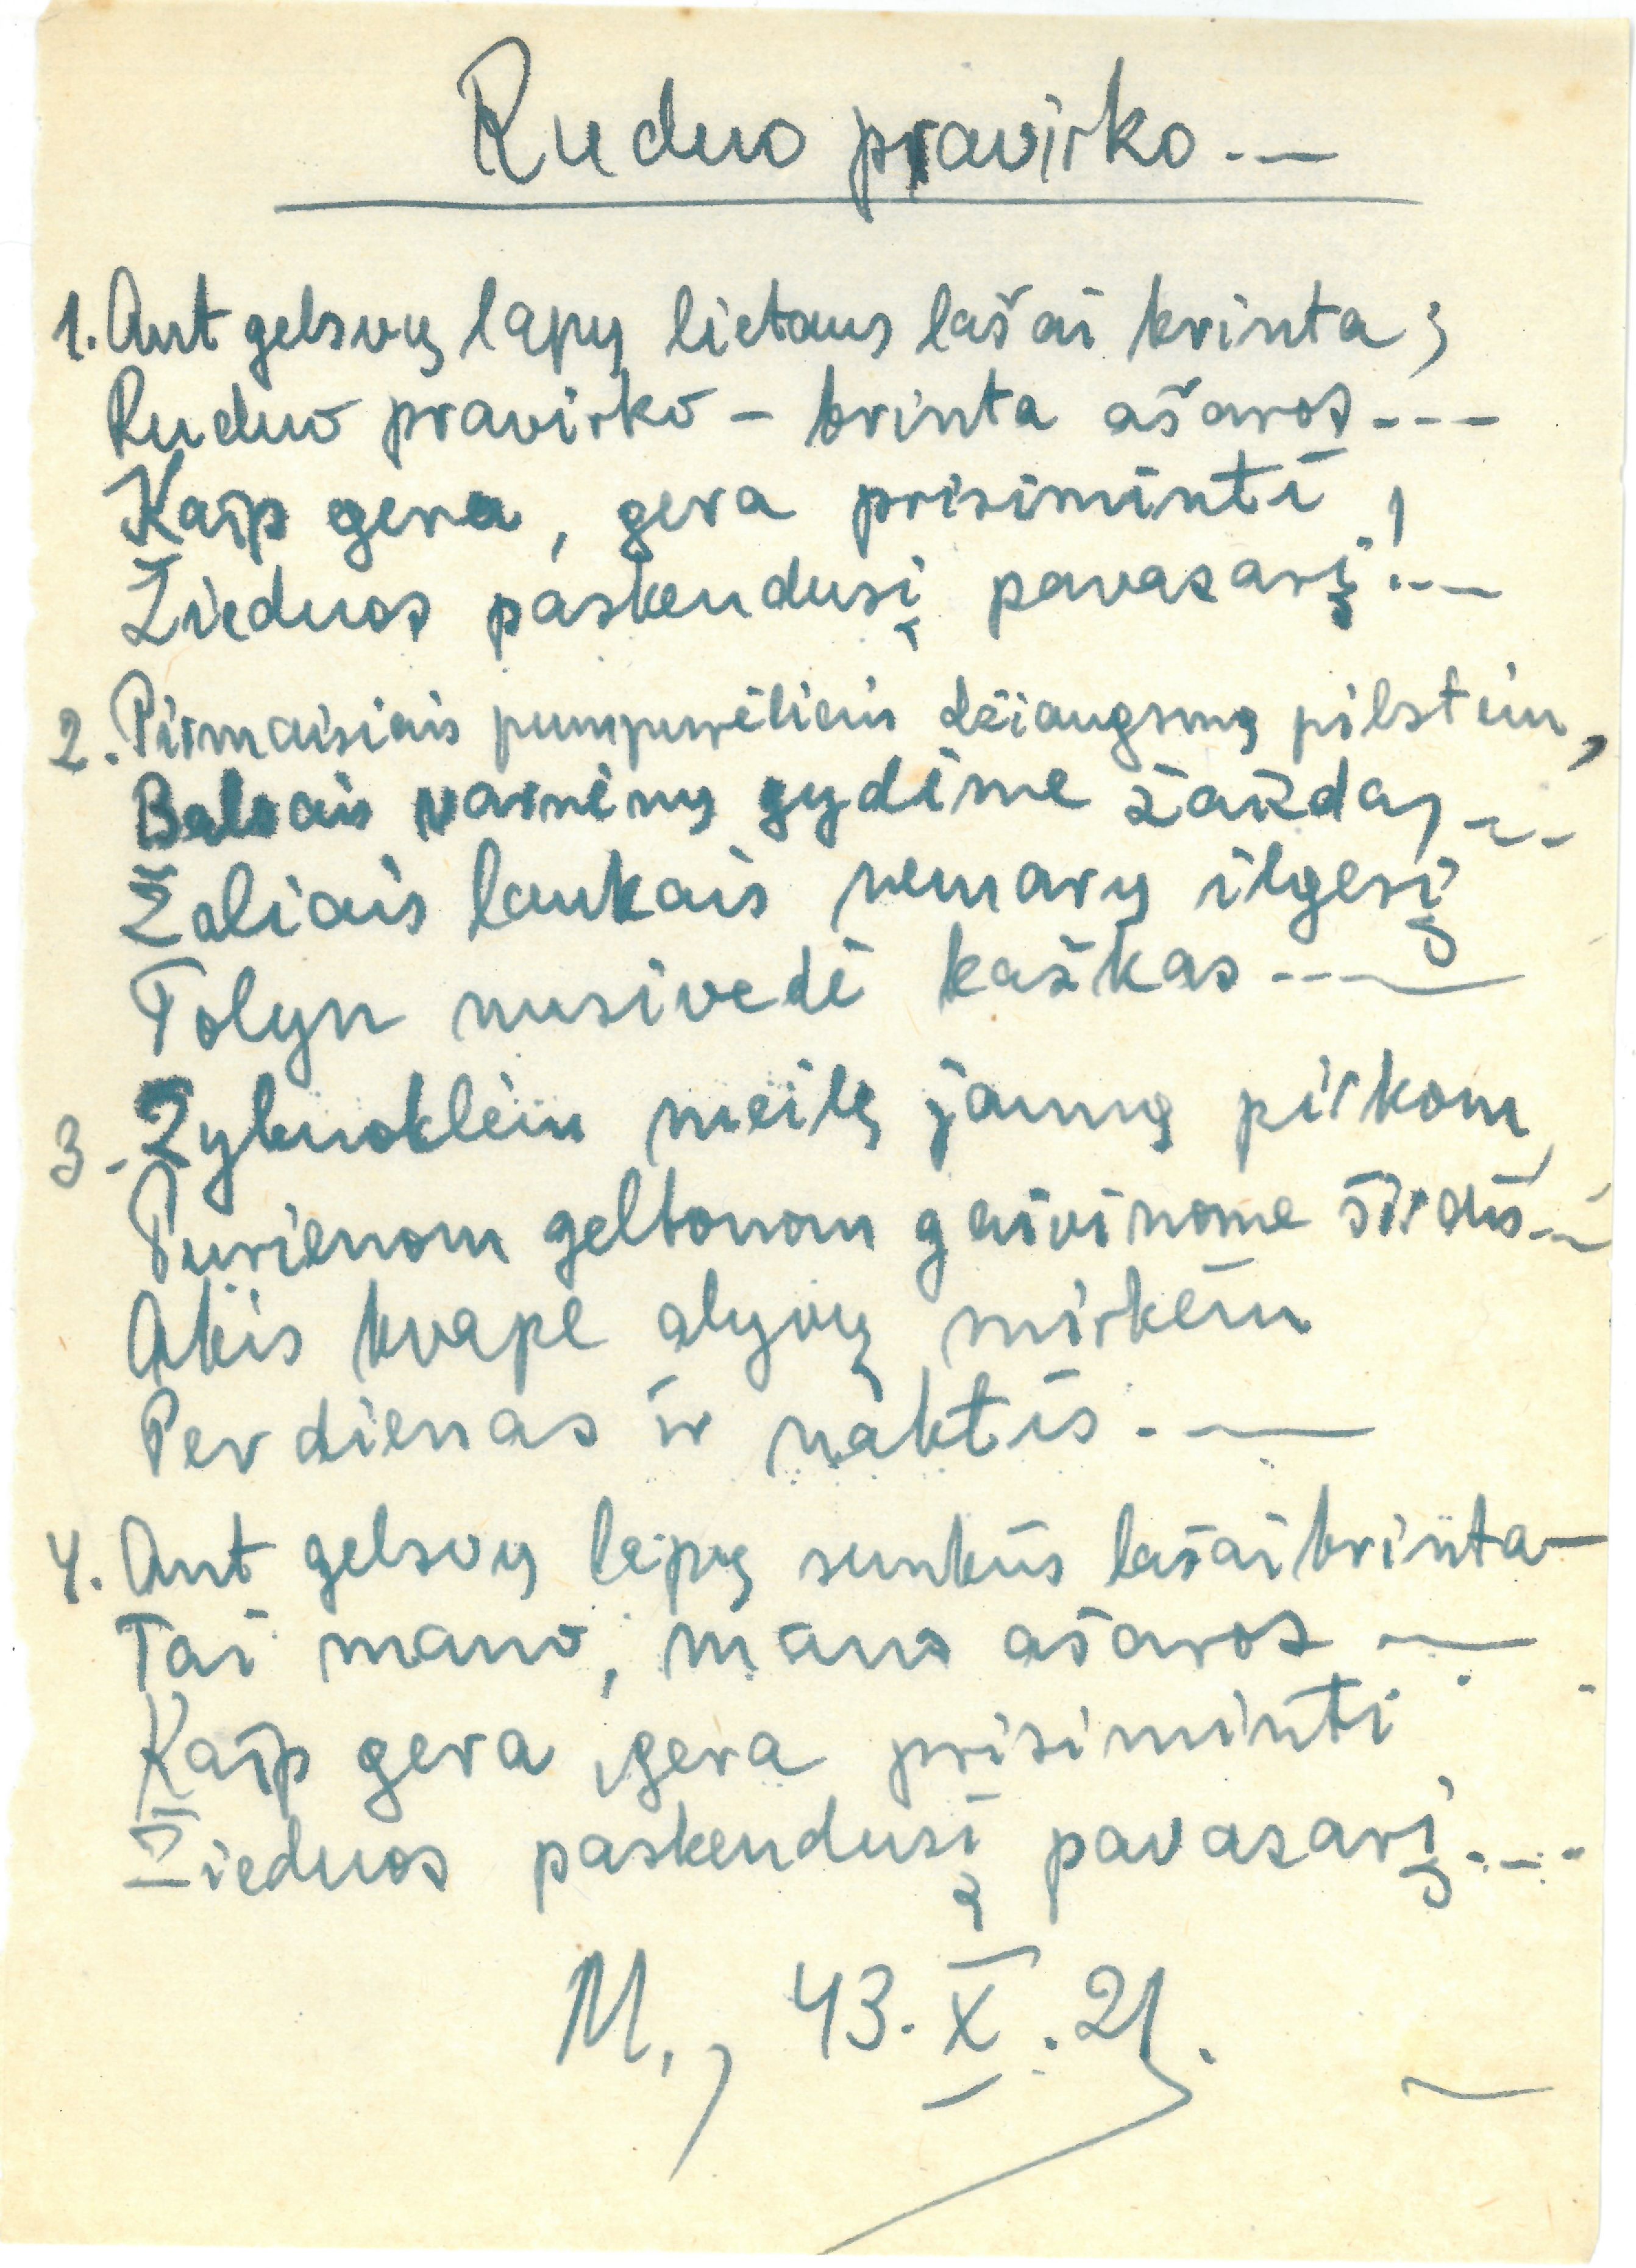 Ruduo pravirko...
1. Ant gelsvų lapų lietaus lašai krinta;
Ruduo pravirko – krinta ašaros...
Kaip gera, gera prisiminti
Žieduos paskendusį pavasarį!...
2. Pirmaisiais pumpurėliais džiaugsmą pilstėm,
Balsais varnėnų gydėme žaizdas...
Žaliais laukais nemarų ilgesį
Tolyn nusivedė kažkas...
3. Žybuoklėm meilę jauną pirkom,
Purienom geltonom gaivinome širdis...
Akis kvape alyvų mirkėm
Per dienas ir naktis...
4. Ant gelsvų lapų sunkūs lašai krinta –
Tai mano, mano ašaros...
Kaip gera, gera prisiminti
Žieduos paskendusį pavasarį...
M., 43.X.21.